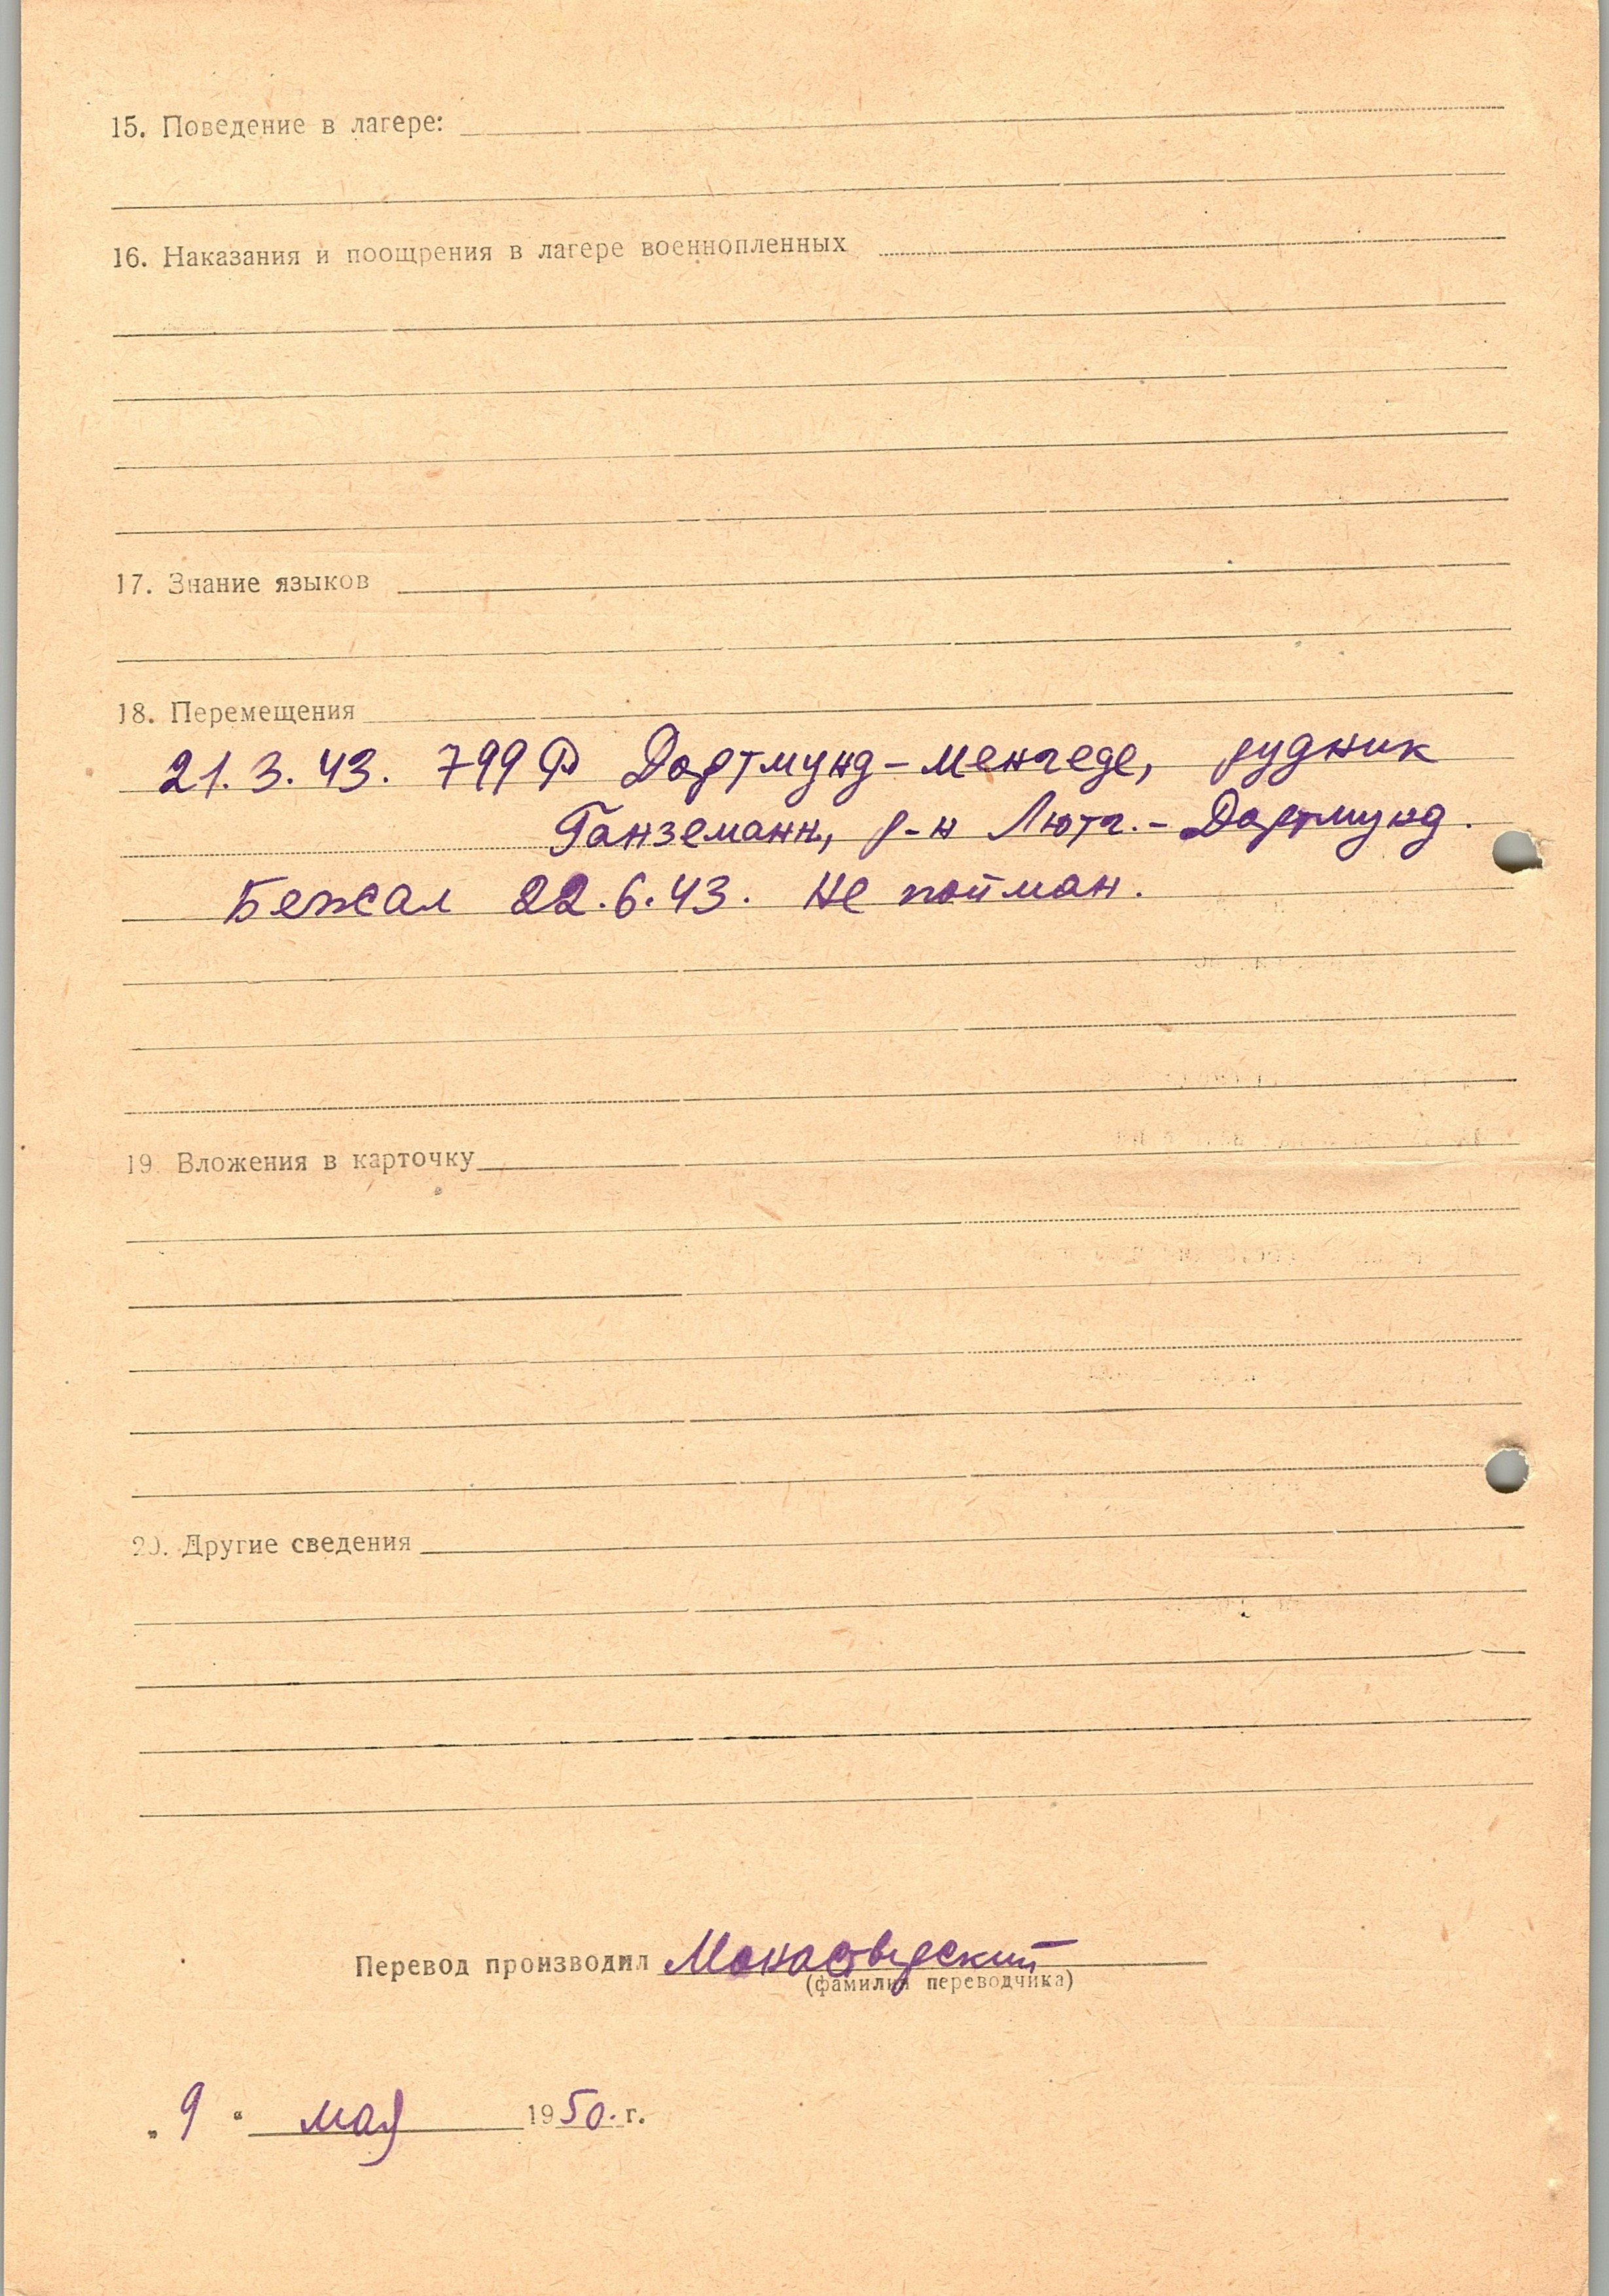 15. Поведение в лагере:
16. Наказания и поощрения в лагере военнопленных
17. Знание языков
18. Перемещения
21.3.43. 799 Р Дортмунд-Менгеде, рудник
Ганземанн, р-н Лютг.-Дортмунд.
Бежал 22.6.43. Не пойман.
19. Вложения в карточку
20. Другие сведения
Перевод производил Монастырский
(фамилия переводчика)
„9“ мая 1950. г.